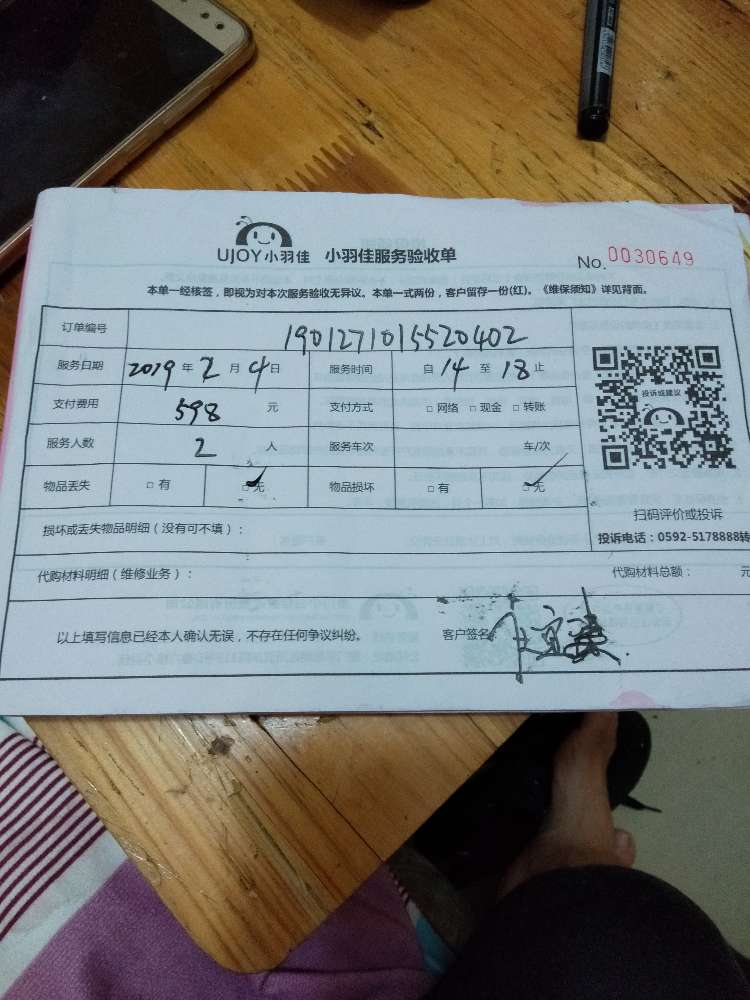 UJOY小羽佳 小羽佳服务验收单 No. 0030649
本单一经核签，即视为对本次服务验收无异议。本单一式两份，客户留存一份(红)。《维保须知》详见背面。
订单编号 1901271015520402
服务日期 2019 年 2 月 4 日 服务时间 自 14 至 18 止
支付费用 598 元 支付方式 □ 网络 □ 现金 □ 转账
服务人数 2 人 服务车次 车/次
投诉或建议
物品丢失 □ 有 □ 无 物品损坏 □ 有 □ 无
扫码评价或投诉
损坏或丢失物品明细（没有可不填）：
投诉电话：0592-5178888转
代购材料明细（维修业务）： 代购材料总额： 元
以上填写信息已经本人确认无误，不存在任何争议纠纷。 客户签名：